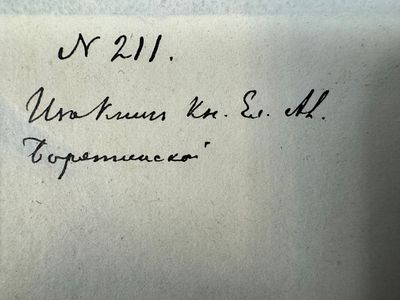 N 211.
Изъ Книгъ Кн. Ел. Ал.
Борятинской